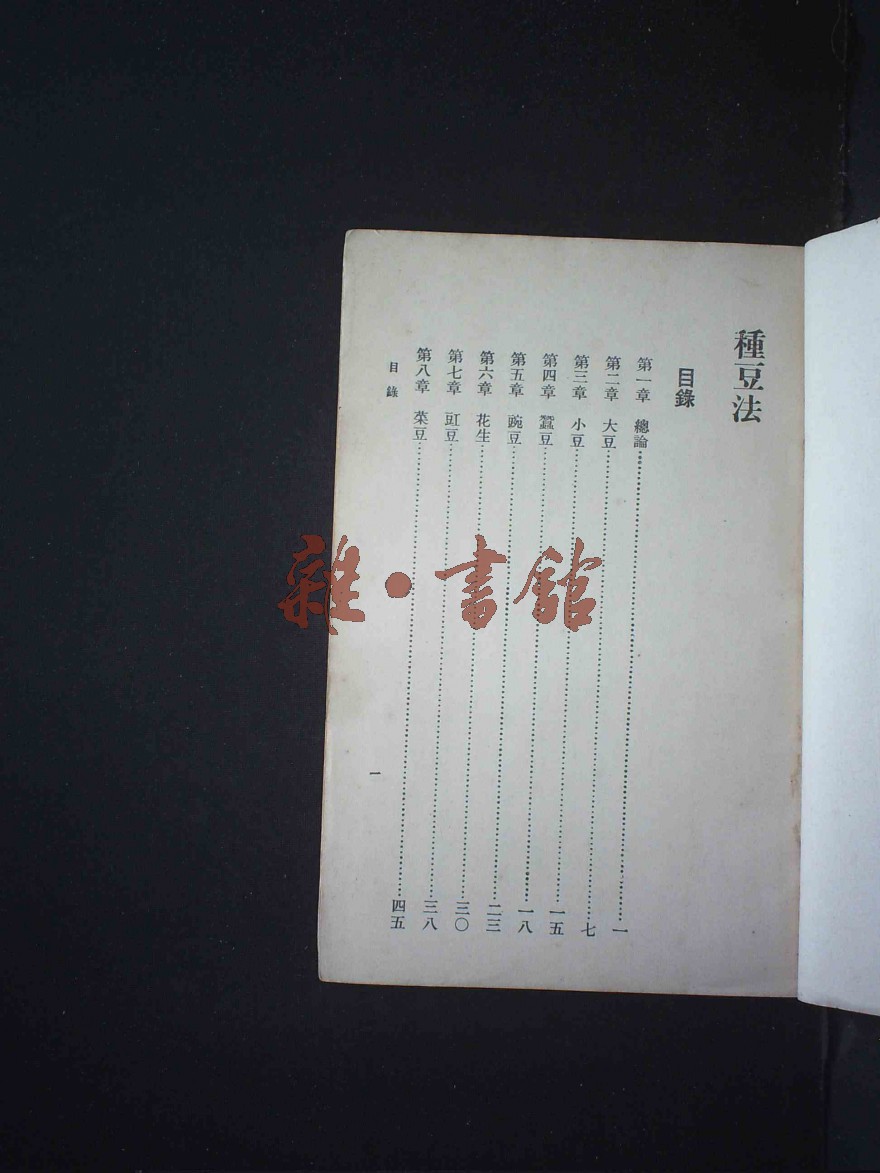 種豆法
目錄
第一章　總論……一
第二章　大豆……七
第三章　小豆……一五
第四章　蠶豆……一八
第五章　豌豆……二三
第六章　花生……三〇
第七章　豇豆……三八
第八章　菜豆……四五
目錄
一
雜·書館